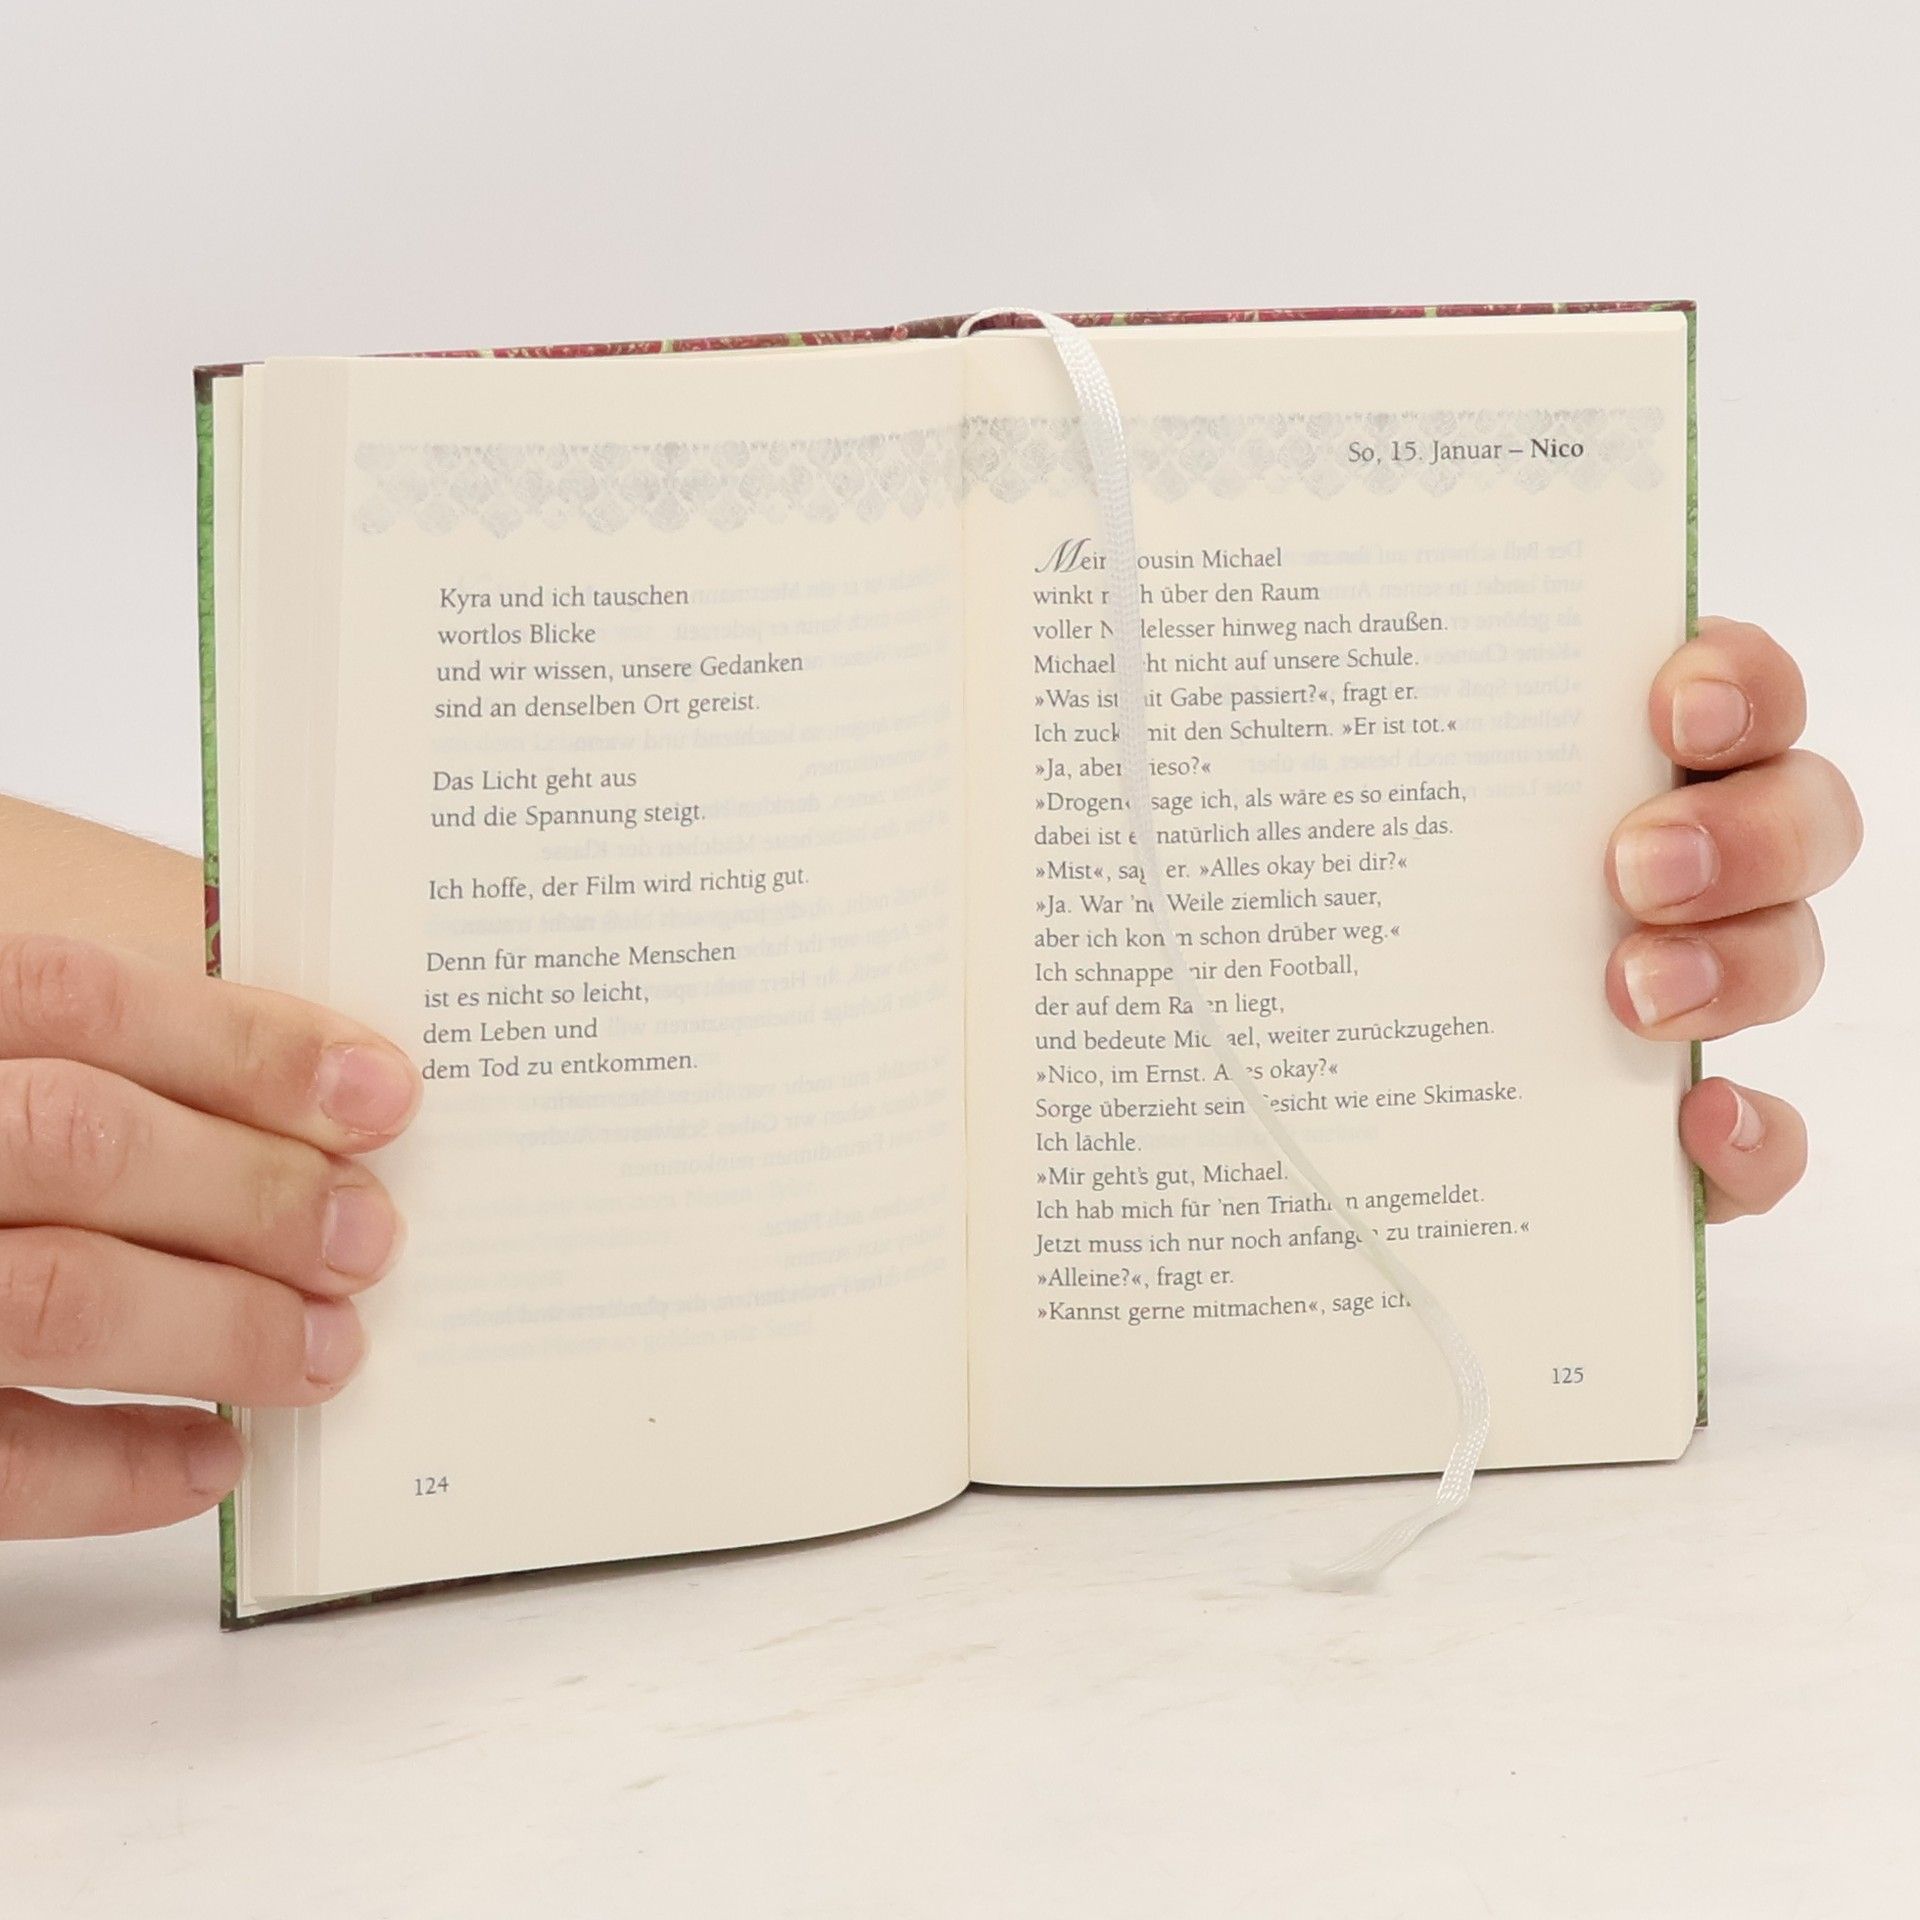 Kyra und ich tauschen
wortlos Blicke
und wir wissen, unsere Gedanken
sind an denselben Ort gereist.
Das Licht geht aus
und die Spannung steigt.
Ich hoffe, der Film wird richtig gut.
Denn für manche Menschen
ist es nicht so leicht,
dem Leben und
dem Tod zu entkommen.
124
So, 15. Januar – Nico
Mein Cousin Michael
winkt mich über den Raum
voller Nudelesser hinweg nach draußen.
Michael geht nicht auf unsere Schule.
»Was ist mit Gabe passiert?«, fragt er.
Ich zucke mit den Schultern. »Er ist tot.«
»Ja, aber wieso?«
»Drogen«, sage ich, als wäre es so einfach,
dabei ist es natürlich alles andere als das.
»Mist«, sagt er. »Alles okay bei dir?«
»Ja. War 'ne Weile ziemlich sauer,
aber ich komm schon drüber weg.«
Ich schnappe mir den Football,
der auf dem Rasen liegt,
und bedeute Michael, weiter zurückzugehen.
»Nico, im Ernst. Alles okay?«
Sorge überzieht sein Gesicht wie eine Skimaske.
Ich lächle.
»Mir geht's gut, Michael.
Ich hab mich für 'nen Triathlon angemeldet.
Jetzt muss ich nur noch anfangen zu trainieren.«
»Alleine?«, fragt er.
»Kannst gerne mitmachen«, sage ich.
125